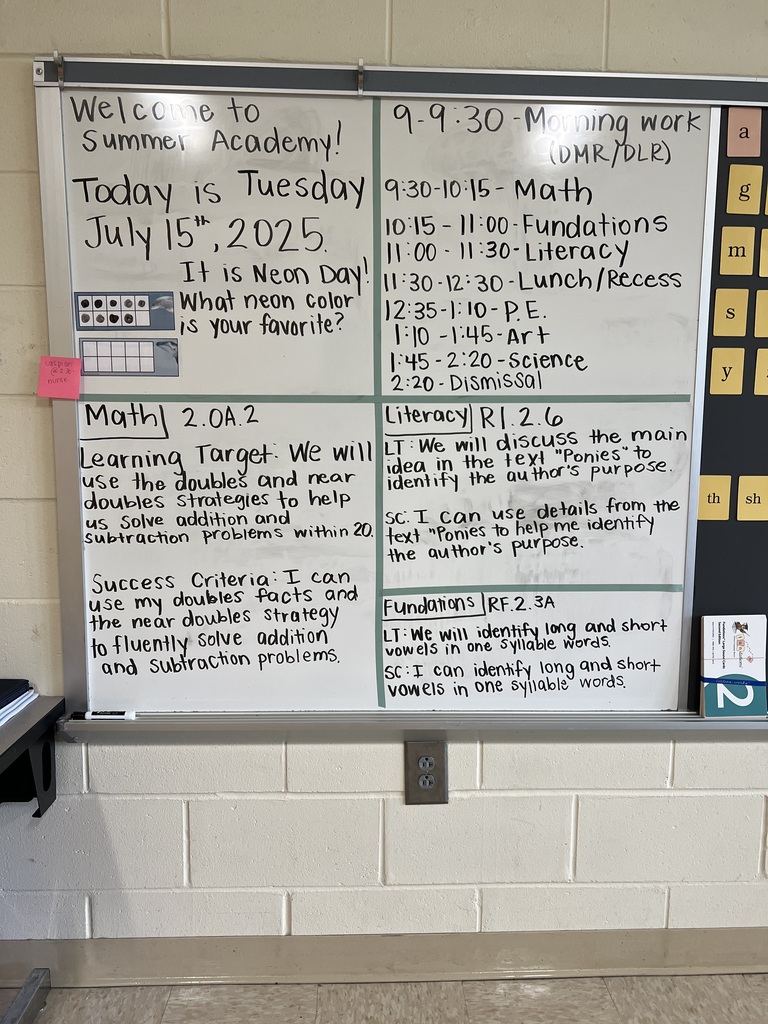 Welcome to
Summer Academy!
Today is Tuesday
July 15th, 2025.
It is Neon Day!
What neon color
is your favorite?
9-9:30 - Morning work
(DMR/DLR)
9:30-10:15 - Math
10:15 - 11:00 - Fundations
11:00 - 11:30 - Literacy
11:30-12:30 - Lunch/Recess
12:35-1:10 - P.E.
1:10 - 1:45 - Art
1:45 - 2:20 - Science
2:20 - Dismissal
Math 2.OA.2
Learning Target: We will
use the doubles and near
doubles strategies to help
us solve addition and
subtraction problems within 20.
Success Criteria: I can
use my doubles facts and
the near doubles strategy
to fluently solve addition
and subtraction problems.
Literacy RI.2.6
LT: We will discuss the main
idea in the text "Ponies" to
identify the author's purpose.
SC: I can use details from the
text "Ponies to help me identify
the author's purpose.
Fundations RF.2.3A
LT: We will identify long and short
vowels in one syllable words.
SC: I can identify long and short
vowels in one syllable words.
a
g
m
s
y
th sh
2